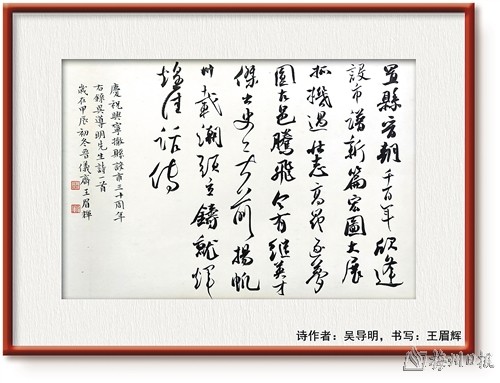 置縣晉朝千百年欣逢
設市譜新篇宏圖大展
抓機遇壯志高昂逐夢
圓古邑騰飛今有繼英才
傑出史空前揚帆
卅載潮頭立鑄就輝
煌佳話傳
慶祝興寧撤縣設市三十周年
右錄吳導明先生詩一首
歲在甲辰初冬晉儀齋王眉輝
诗作者：吴导明，书写：王眉辉
梅州日报